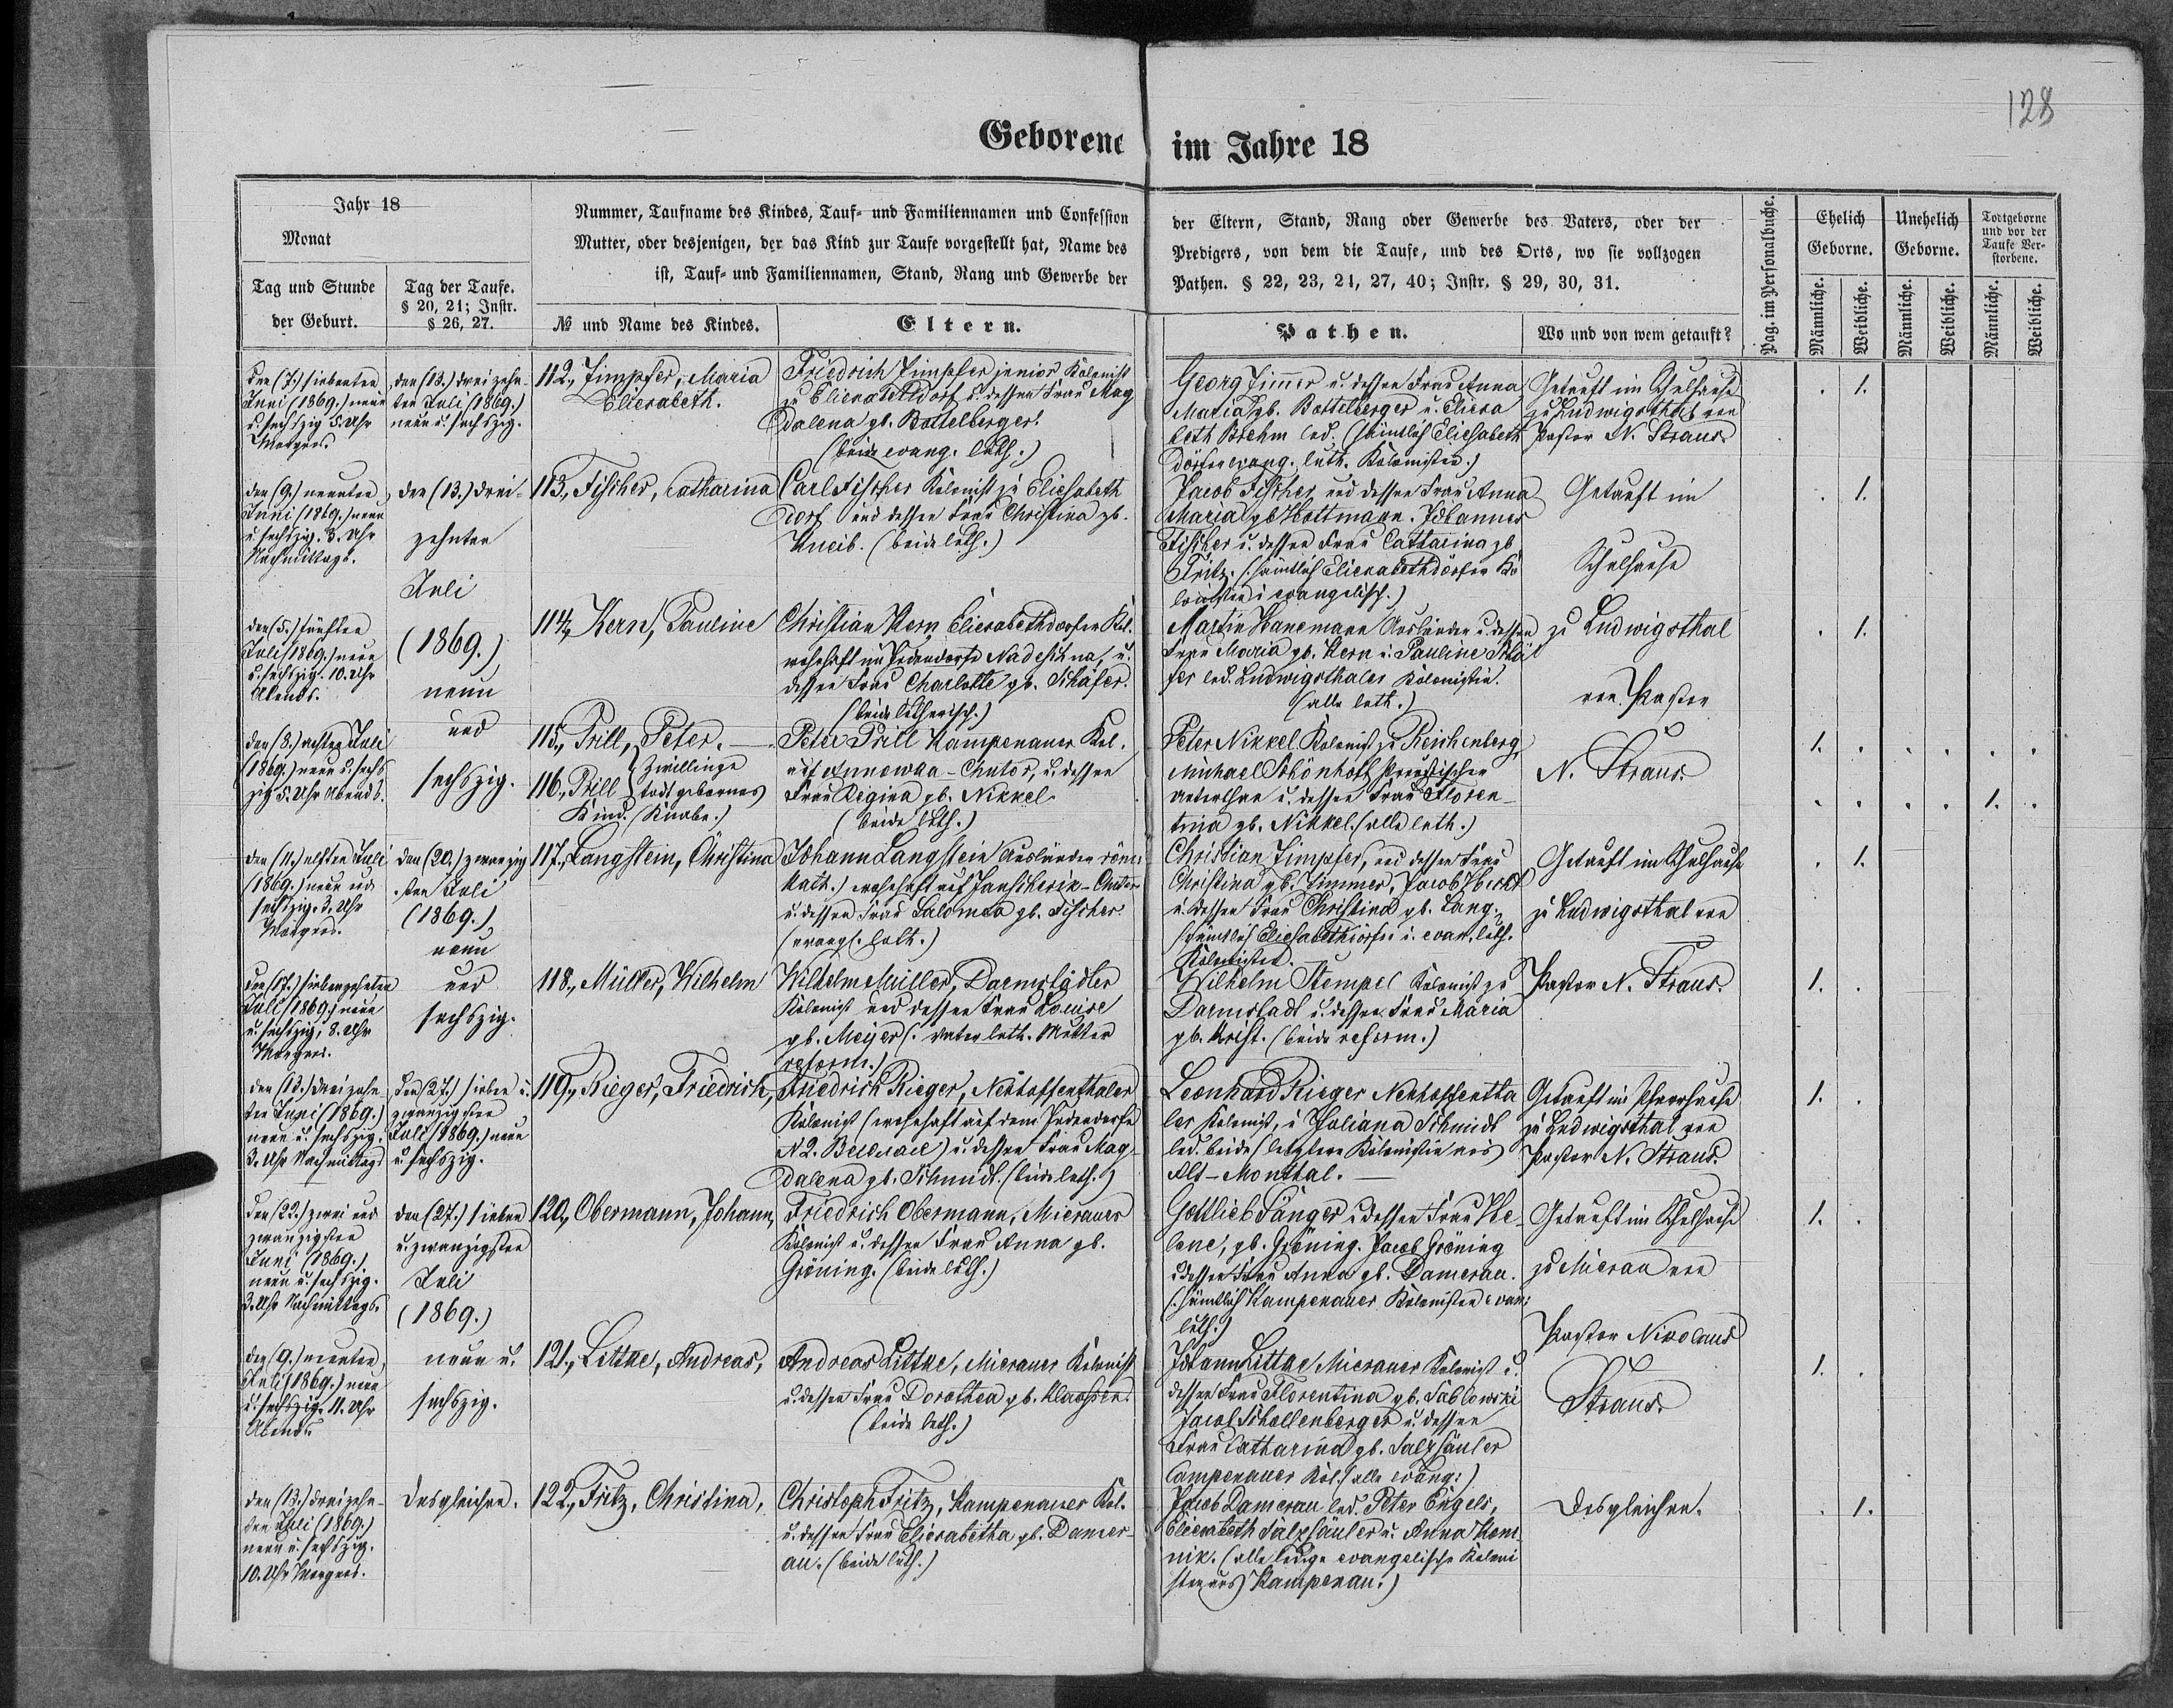 128
Geborene im Jahre 18
Jahr 18
Monat
Tag und Stunde
der Geburt.
Tag der Taufe.
§ 20, 21; Instr.
§ 26, 27.
Nummer, Taufname des Kindes, Tauf- und Familiennamen und Confession
Mutter, oder desjenigen, der das Kind zur Taufe vorgestellt hat, Name des
ist, Tauf- und Familiennamen, Stand, Rang und Gewerbe der
№ und Name des Kindes.
Eltern.
der Eltern, Stand, Rang oder Gewerbe des Vaters, oder der
Predigers, von dem die Taufe, und des Orts, wo sie vollzogen
Pathen. § 22, 23, 24, 27, 40; Instr. § 29, 30, 31.
Pathen.
Wo und von wem getauft?
Pag. im Personalbuche.
Ehelich
Geborne.
Unehelich
Geborne.
Todtgeborne
und vor der
Taufe Ver-
storbene.
Männliche.
Weibliche.
Männliche.
Weibliche.
Männliche.
Weibliche.
den (7.) siebenten
Juni (1869.) neun
u. sechszig 5. Uhr
Morgens.
den (13.) dreizehn-
ten Juli (1869.)
neun u. sechszig.
112., Zimpfer, Maria
Elisabeth.
Friedrich Zimpfer junior Kolonist
zu Elisabethdorf u. dessen Frau Mag
dalena gb. Bottelberger.
(beide evang. luth.)
Georg Zimmer u. dessen Frau Anna
Maria gb. Bottelberger u. Elisa
beth Brehm led. (sämtlich Elisabeth
dörfer evang. luth. Kolonisten.)
Getauft im Schulhause
zu Ludwigsthal von
Pastor N. Straus.
. 1.
den (9.) neunten
Juni (1869.) neun
u. sechszig. 3. Uhr
Nachmittags.
den (13.) drei-
zehnten
Juli
(1869.)
neun
und
sechszig.
113., Fischer, Catharina
Carl Fischer Kolonist zu Elisabeth
dorf und dessen Frau Christina gb.
Kneib. (beide luth.)
Jacob Fischer und dessen Frau Anna
Maria gb. Hottmann. Johannes
Fischer u. dessen Frau Catharina gb
Fritz. (sämtlich Elisabethdörfer Ko
lonisten u. evangelisch.)
Getauft im
Schulhause
zu Ludwigsthal
von Pastor
N. Straus.
. 1.
den (5.) fünften
Juli (1869.) neun
u. sechszig. 10. Uhr
Abends.
114., Kern, Pauline
Christian Kern Elisabethdorfer Kol.
wohnhaft im Judendorfe Nadeschna, u.
dessen Frau Charlotte gb. Schäfer.
(beide lutherisch.)
Martin Hanemann Ausländer u. dessen
Frau Maria gb. Kern u. Pauline Schä
fer led. Ludwigsthaler Kolonistin.
(alle luth.)
. 1.
den (8.) achten Juli
(1869.) neun u. sechs
zig 5. Uhr Abends.
115., Prill, Peter.
116., Prill
Zwillinge
todtgebornes
Kind. (Knabe.)
Peter Prill Kampenauer Kol.
auf Annowka-Chutor, u. dessen
Frau Regina gb. Nikkel
(beide luth.)
Peter Nikkel Kolonist zu Reichenberg,
Michael Schönhoff Preussischer
Unterthan u. dessen Frau Floren-
tina gb. Nikkel. (alle luth.)
1. . . . . .
. . . . 1. .
den (11.) elften Juli
(1869.) neun und
sechszig. 3. Uhr
Morgens.
den (20.) zwanzig
sten Juli
(1869.)
neun
und
sechszig.
117., Langstein, Christina
Johann Langstein Ausländer röm:
kath.) wohnhaft auf Janscherik-Chutor
u. dessen Frau Salomea gb. Fischer
(evangl. luth.)
Christian Zimpfer, und dessen Frau
Christina gb. Zimmer, Jacob
u. dessen Frau Christina gb. Lang.
(sämtlich Elisabethdörfer u. evan. luth.
Kolonisten.
Getauft im Schulhause
zu Ludwigsthal von
Pastor N. Straus.
. 1.
den (17.) siebenzehnten
Juli (1869.) neun
u. sechszig, 8. Uhr
Morgens.
118., Müller, Wilhelm
Wilhelm Müller, Darmstädter
Kolonist und dessen Frau Louise
gb. Meijer (. Vater luth. Mutter
reform.)
Wilhelm Stempel Kolonist zu
Darmstadt u. dessen Frau Maria
gb. Krist. (beide reform.)
1. .
den (13.) dreizehn
ten Juni (1869.)
neun u. sechszig.
3. Uhr Nachmittags
den (27.) sieben u.
zwanzigsten
Juli (1869.) neun
u. sechszig.
119., Rieger, Friedrich,
Friedrich Rieger, Neuhoffenthaler
Kolonist (wohnhaft auf dem Judendorfe
N2. ) u. dessen Frau Mag-
dalena gb. Schmidt. (beide luth.)
Leonhard Rieger Neuhoffentha
ler Kolonist, u. Juliana Schmidt
led. beide (letztere Kolonistin aus
Alt-Monthal.
Getauft im Pfarrhause
zu Ludwigsthal von
Pastor N. Straus.
1. .
den (22.) zwei und
zwanzigsten
Juni (1869.)
neun u. sechszig.
3. Uhr Nachmittags.
den (27.) sieben
u. zwanzigsten
Juli
(1869.)
neun u.
sechszig.
120., Obermann, Johann,
Friedrich Obermann, Mierauer
Kolonist u. dessen Frau Anna gb.
Gröning. (beide luth.)
Gottlieb Sänger u. dessen Frau He-
lene, gb. Gröning. Jacob Gröning
u. dessen Frau Anna gb. Damerau.
(. sämtlich Kampenauer Kolonisten evan:
luth.)
Getauft im Schulhause
zu Mierau von
Pastor Nikolaus
Straus.
1. .
den (9.) neunten
Juli (1869.) neun
u. sechszig. 11. Uhr
Abends
121., Littke, Andreas,
Andreas Littke, Mierauer Kolonist
u. dessen Frau Dorothea gb. Klaassen.
(beide luth.)
Johann Littke Mierauer Kolonist u.
dessen Frau Florentina gb. Sablowski
Jacob Schollenberger u. dessen
Frau Catharina gb. Salzsäuler
Campenauer Kol. (alle evang:)
1. .
den (13.) dreizehn-
ten Juli (1869.)
neun u. sechszig.
10. Uhr Morgens.
Desgleichen.
122., Fritz, Christina,
Christoph Fritz, Kampenauer Kol.
u. dessen Frau Elisabetha gb. Damer-
au. (beide luth.)
Jacob Damerau led. Peter Engels,
Elisabeth Salzsäuler u. Anna Kom
nik. (alle ledige evangelische Koloni
sten aus Kampenau.)
Desgleichen.
. 1.